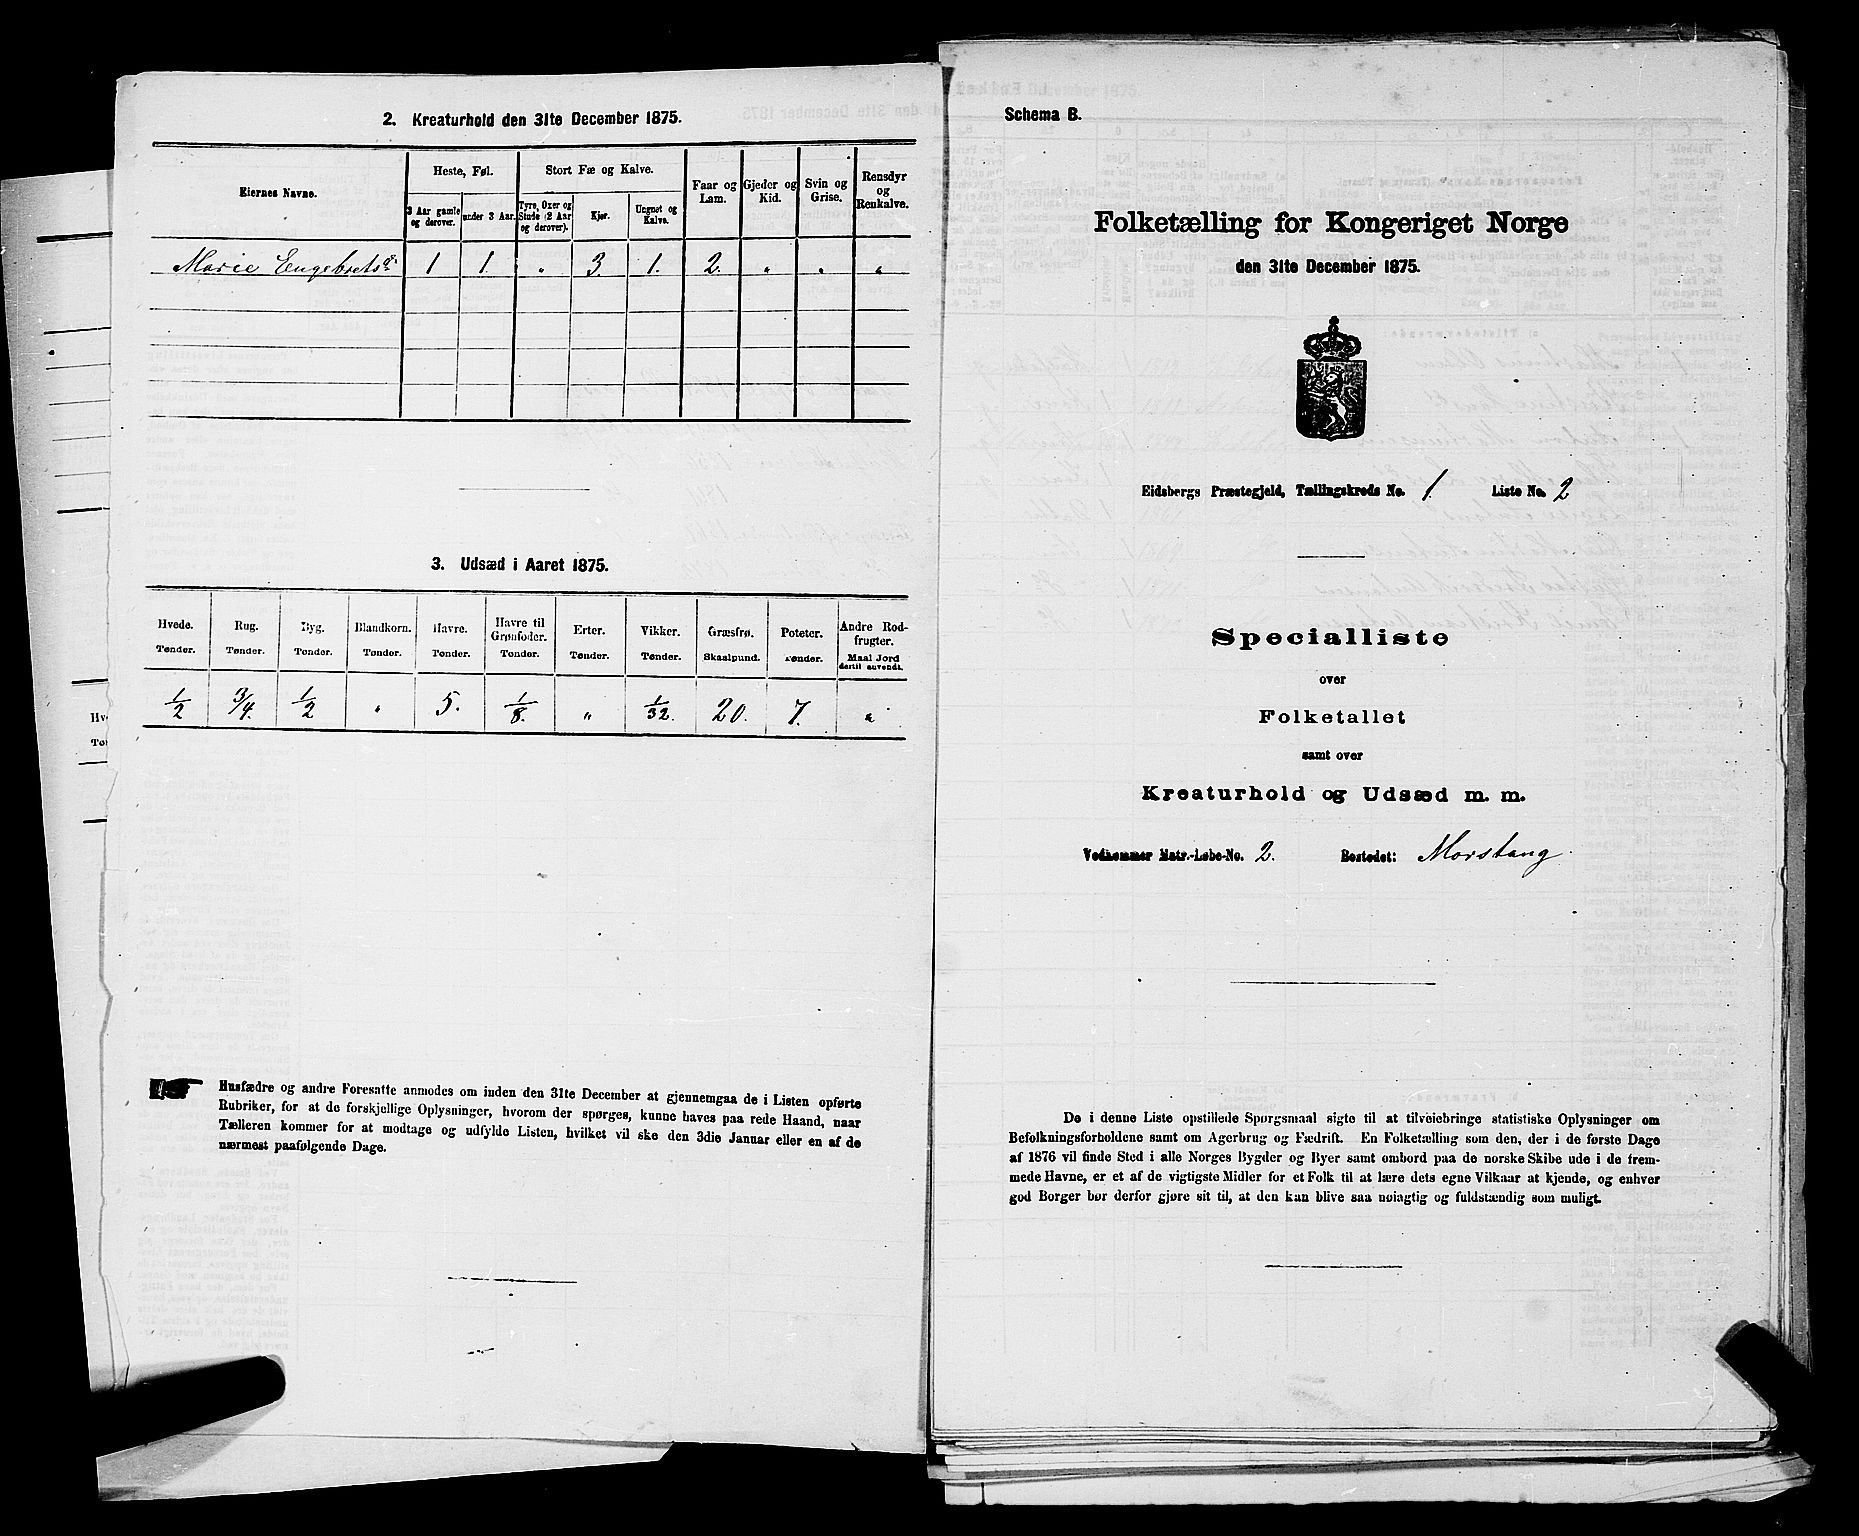 2. Kreaturhold den 31te December 1875.
Eiernes Navne.
Heste, Føl.
3 Aar gamle og derover.
under 3 Aar.
Stort Fæ og Kalve.
Tyre, Oxer og Stude (2 Aar og derover).
Kjør.
Ungnøt og Kalve.
Faar og Lam.
Gjeder og Kid.
Svin og Grise.
Rensdyr og Renkalve.
Marie Engebretsd. 1 1. " 3. 1. 2. " " "
3. Udsæd i Aaret 1875.
Hvede. Rug. Byg. Blandkorn. Havre. Havre til Grønfoder. Erter. Vikker. Græsfrø. Poteter. Andre Rodfrugter.
Tønder. Tønder. Tønder. Tønder. Tønder. Tønder. Tønder. Tønder. Skaalpund. Tønder. Maal Jord dertil anvendt.
1/2 3/4. 1/2 " 5. 1/8. " 1/32. 20. 7. "
Husfædre og andre Foresatte anmodes om inden den 31te December at gjennemgaa de i Listen opførte
Rubriker, for at de forskjellige Oplysninger, hvorom der spørges, kunne haves paa rede Haand, naar
Tælleren kommer for at modtage og udfylde Listen, hvilket vil ske den 3die Januar eller en af de
nærmest paafølgende Dage.
Schema B.
Folketælling for Kongeriget Norge
den 31te December 1875.
Eidsbergs Præstegjeld, Tællingskreds No. 1. Liste No. 2
Specialliste
over
Folketallet
samt over
Kreaturhold og Udsæd m. m.
Vedkommer Matr.-Løbe-No. 2. Bostedet: Morstang.
De i denne Liste opstillede Spørgsmaal sigte til at tilveiebringe statistiske Oplysninger om
Befolkningsforholdene samt om Agerbrug og Fædrift. En Folketælling som den, der i de første Dage
af 1876 vil finde Sted i alle Norges Bygder og Byer samt ombord paa de norske Skibe ude i de frem-
mede Havne, er et af de vigtigste Midler for et Folk til at lære dets egne Vilkaar at kjende, og enhver
god Borger bør derfor gjøre sit til, at den kan blive saa nøiagtig og fuldstændig som muligt.